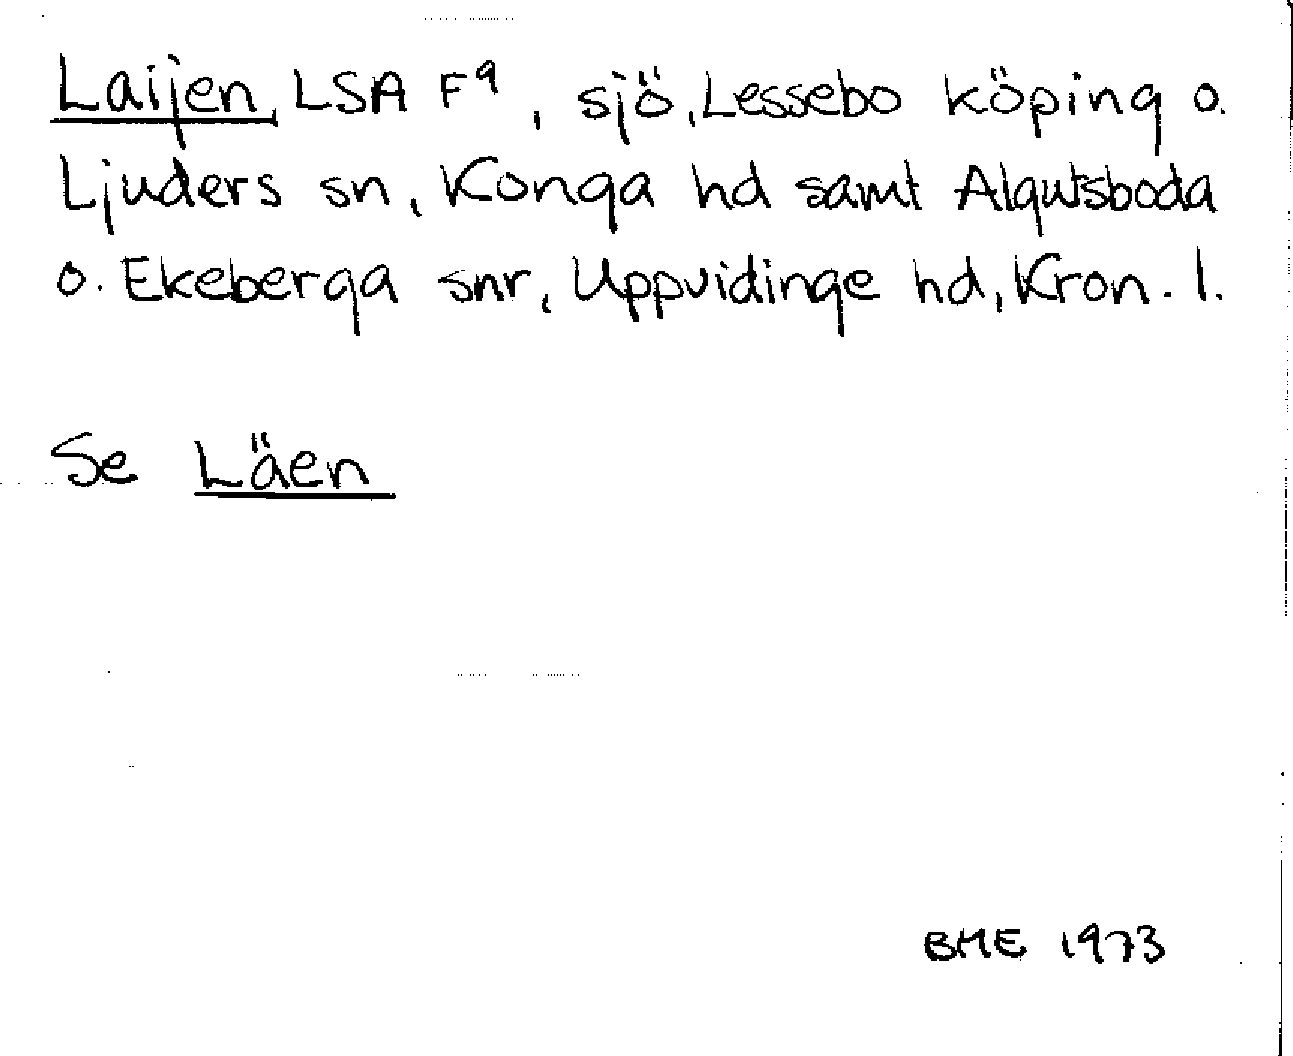 Laijen, LSA F9, sjö, Lessebo köping o.
Ljuders sn, Konga hd samt Algutsboda
o. Ekeberga snr, Uppvidinge hd, Kron. l.
Se Läen
BME 1973